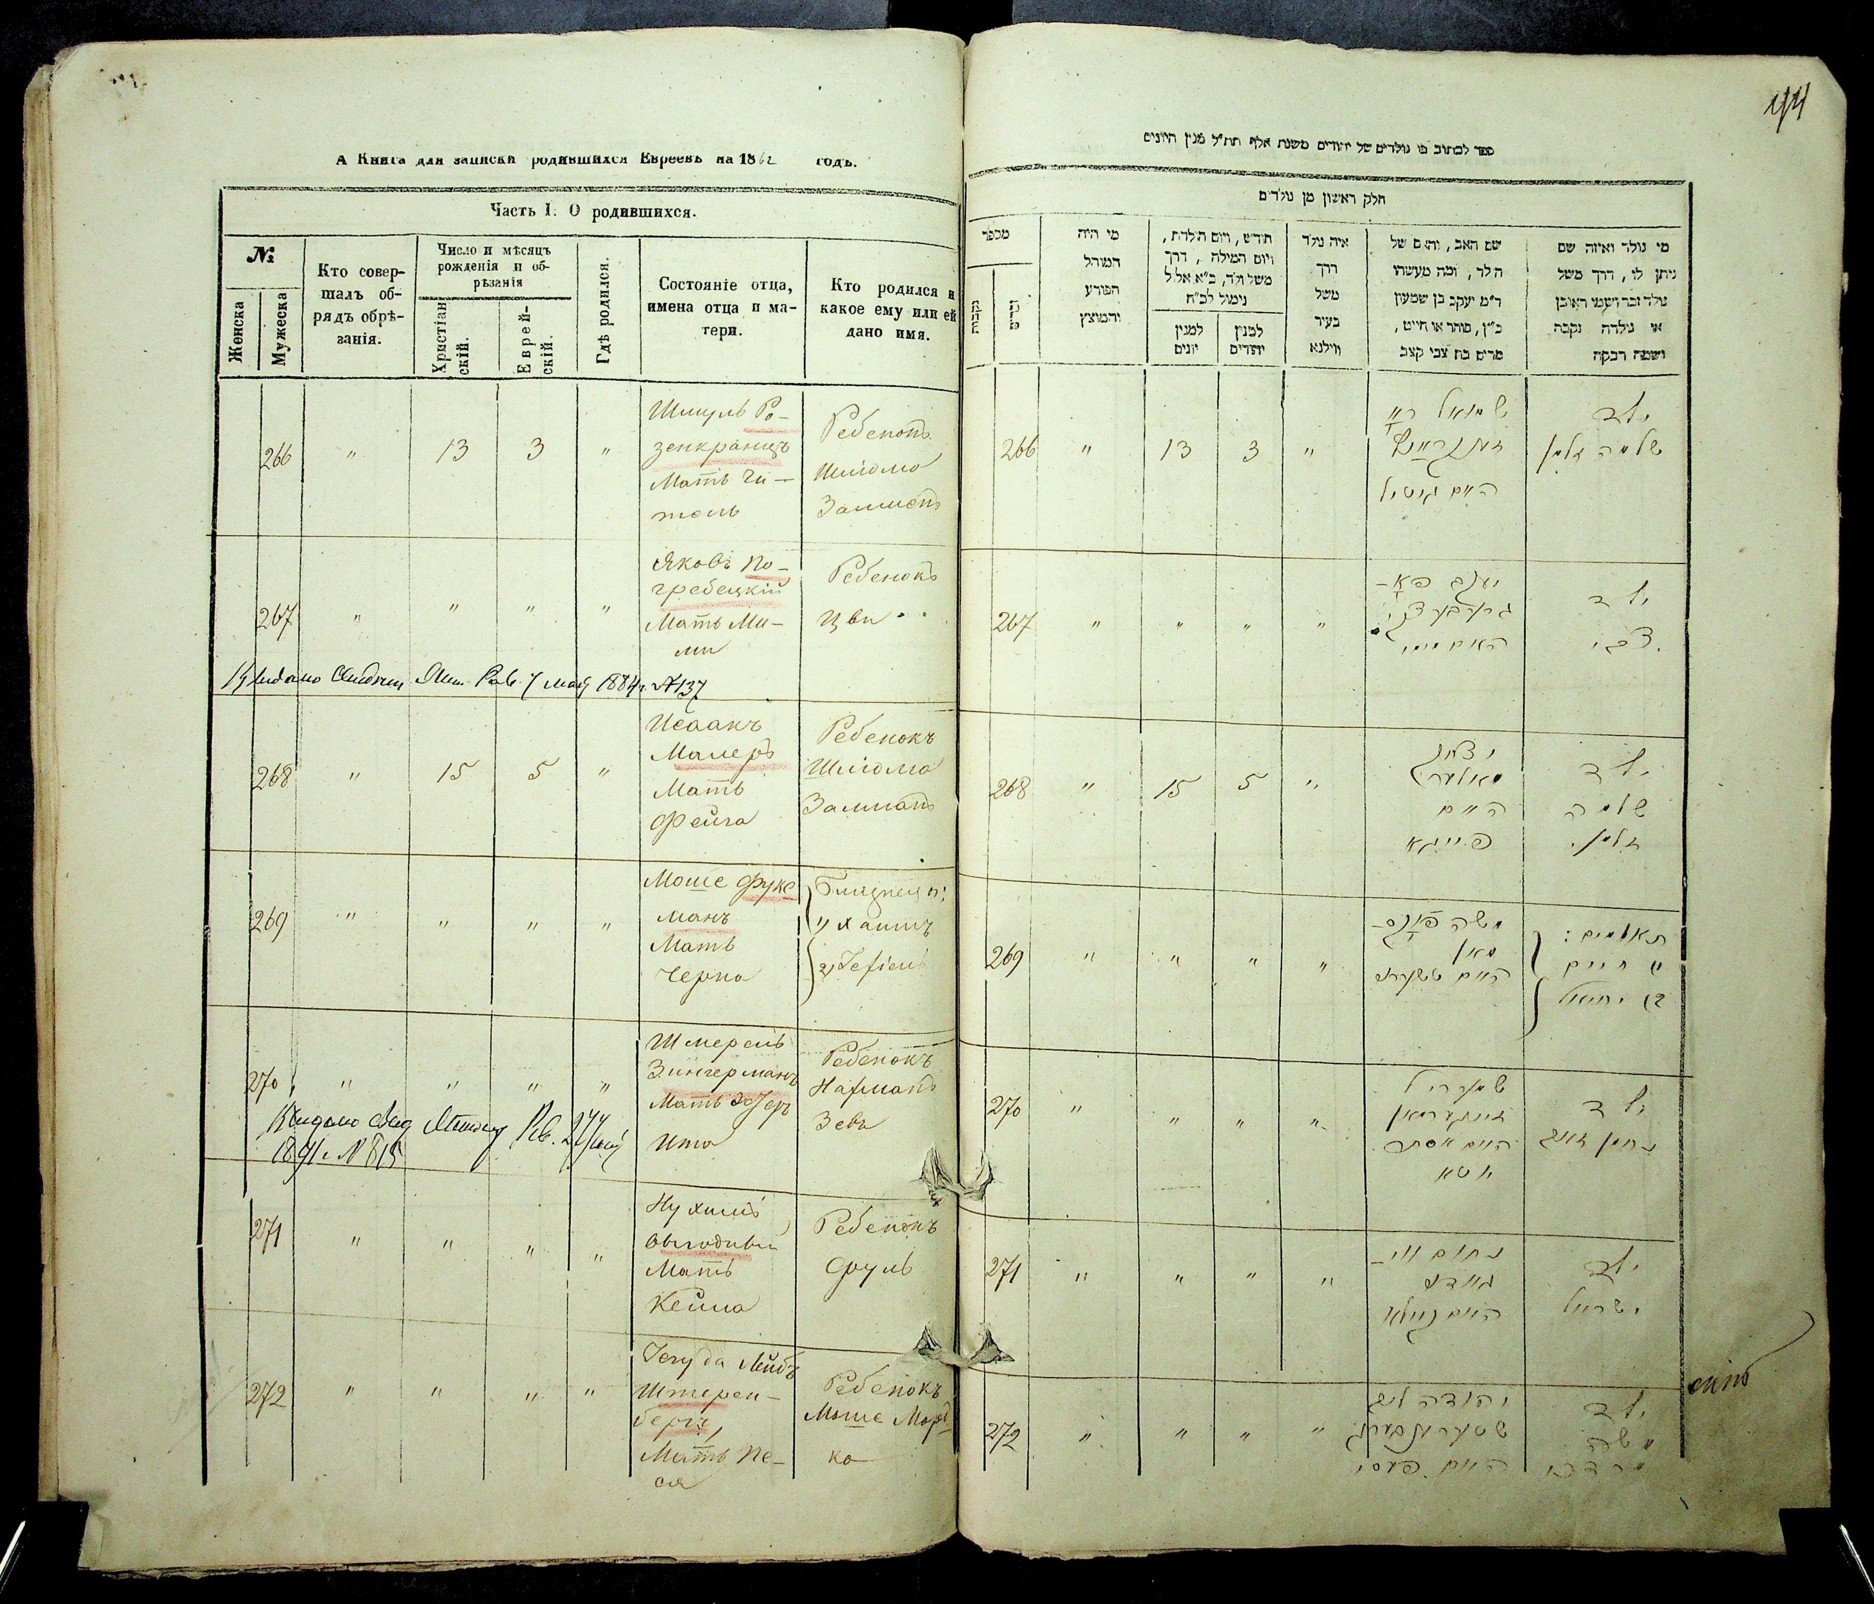 А Книга для записки родившихся Евреевъ на 1862 годъ.
Часть I. О родившихся.
№
Женска
Мужеска
Кто совер-
шалъ об-
рядъ обрѣ-
занія.
Число и мѣсяцъ
рожденія и об-
рѣзанія
Христіан
скій.
Еврей-
скій.
Гдѣ родился.
Состояніе отца,
имена отца и ма-
тери.
Кто родился и
какое ему или ей
дано имя.
266 " 13 3 "
Шмуль Ро-
зенкранцъ
Мать Ги-
тель
Ребенокъ
Шліома
Залменъ
267 " " " "
Яковъ По-
гребецкій
Мать Ми-
ми
Ребенокъ
Цви
7 мая 1884 г. №137
268 " 15 5 "
Исаакъ
Малеръ
Мать
Фейга
Ребенокъ
Шліома
Залманъ
269 " " " "
Моше Фукс
манъ
Мать
Черна
Близнецы:
1) Хаимъ
2) Іехіель
270 " " " "
Шмерель
Зингерманъ
Мать Эстеръ
Ита
Ребенокъ
Нахманъ
Зевъ
1891 г. № 815
271 " " " "
Нухимъ
Мать
Кейла
Ребенокъ
Сруль
272 " " " "
Іегуда Лейбъ
Штерен-
бергъ,
Мать Пе-
ся
Ребенокъ
Моше Морд
ко
194
ספר לכתוב בו נולדים של יהודים משנת אלף תת״ל מנין היונים
חלק ראשון מן נולדים
מספר
נקבות
זכרים
מי היה
המוהל
הפורע
והמוצץ
חודש, ויום הולדת,
ויום המילה, דרך
משל ולד, ב״א אלל
נימול לב״ח
למנין
יונים
למנין
יהודים
איה נולד
דרך
משל
בעיר
ווילנא
שם האב, והאם של
הלד, ומה מעשהו
ד״מ יעקב בן שמעון
כ״ץ, סוחר או חייט,
מרים בת צבי קצב
מי נולד ואיזה שם
ניתן לו, דרך משל
נולד זכר ושמו ראובן
או נולדה נקבה
ושמה רבקה
266 " 13 3 "
שמואל רא
זענקראנץ
האם גיטיל
ילד
שלמה זלמן
267 " " " "
יעקב פא-
גרעבעצקי
האם מימי
ילד
צבי
268 " 15 5 "
יצחק
מאלער
האם
פייגא
ילד
שלמה
זלמן
269 " " " "
משה פוקס-
מאן
האם טשערנא
תאומים:
1) חיים
2) יחיאל
270 " " " "
שמעריל
זינגערמאן
האם אסתר
איטא
ילד
נחמן זאב
271 " " " "
האם קיילא
ילד
ישראל
272 " " " "
יהודה ליב
שטערנבערג
האם פעסי
ילד
משה
מרדכי